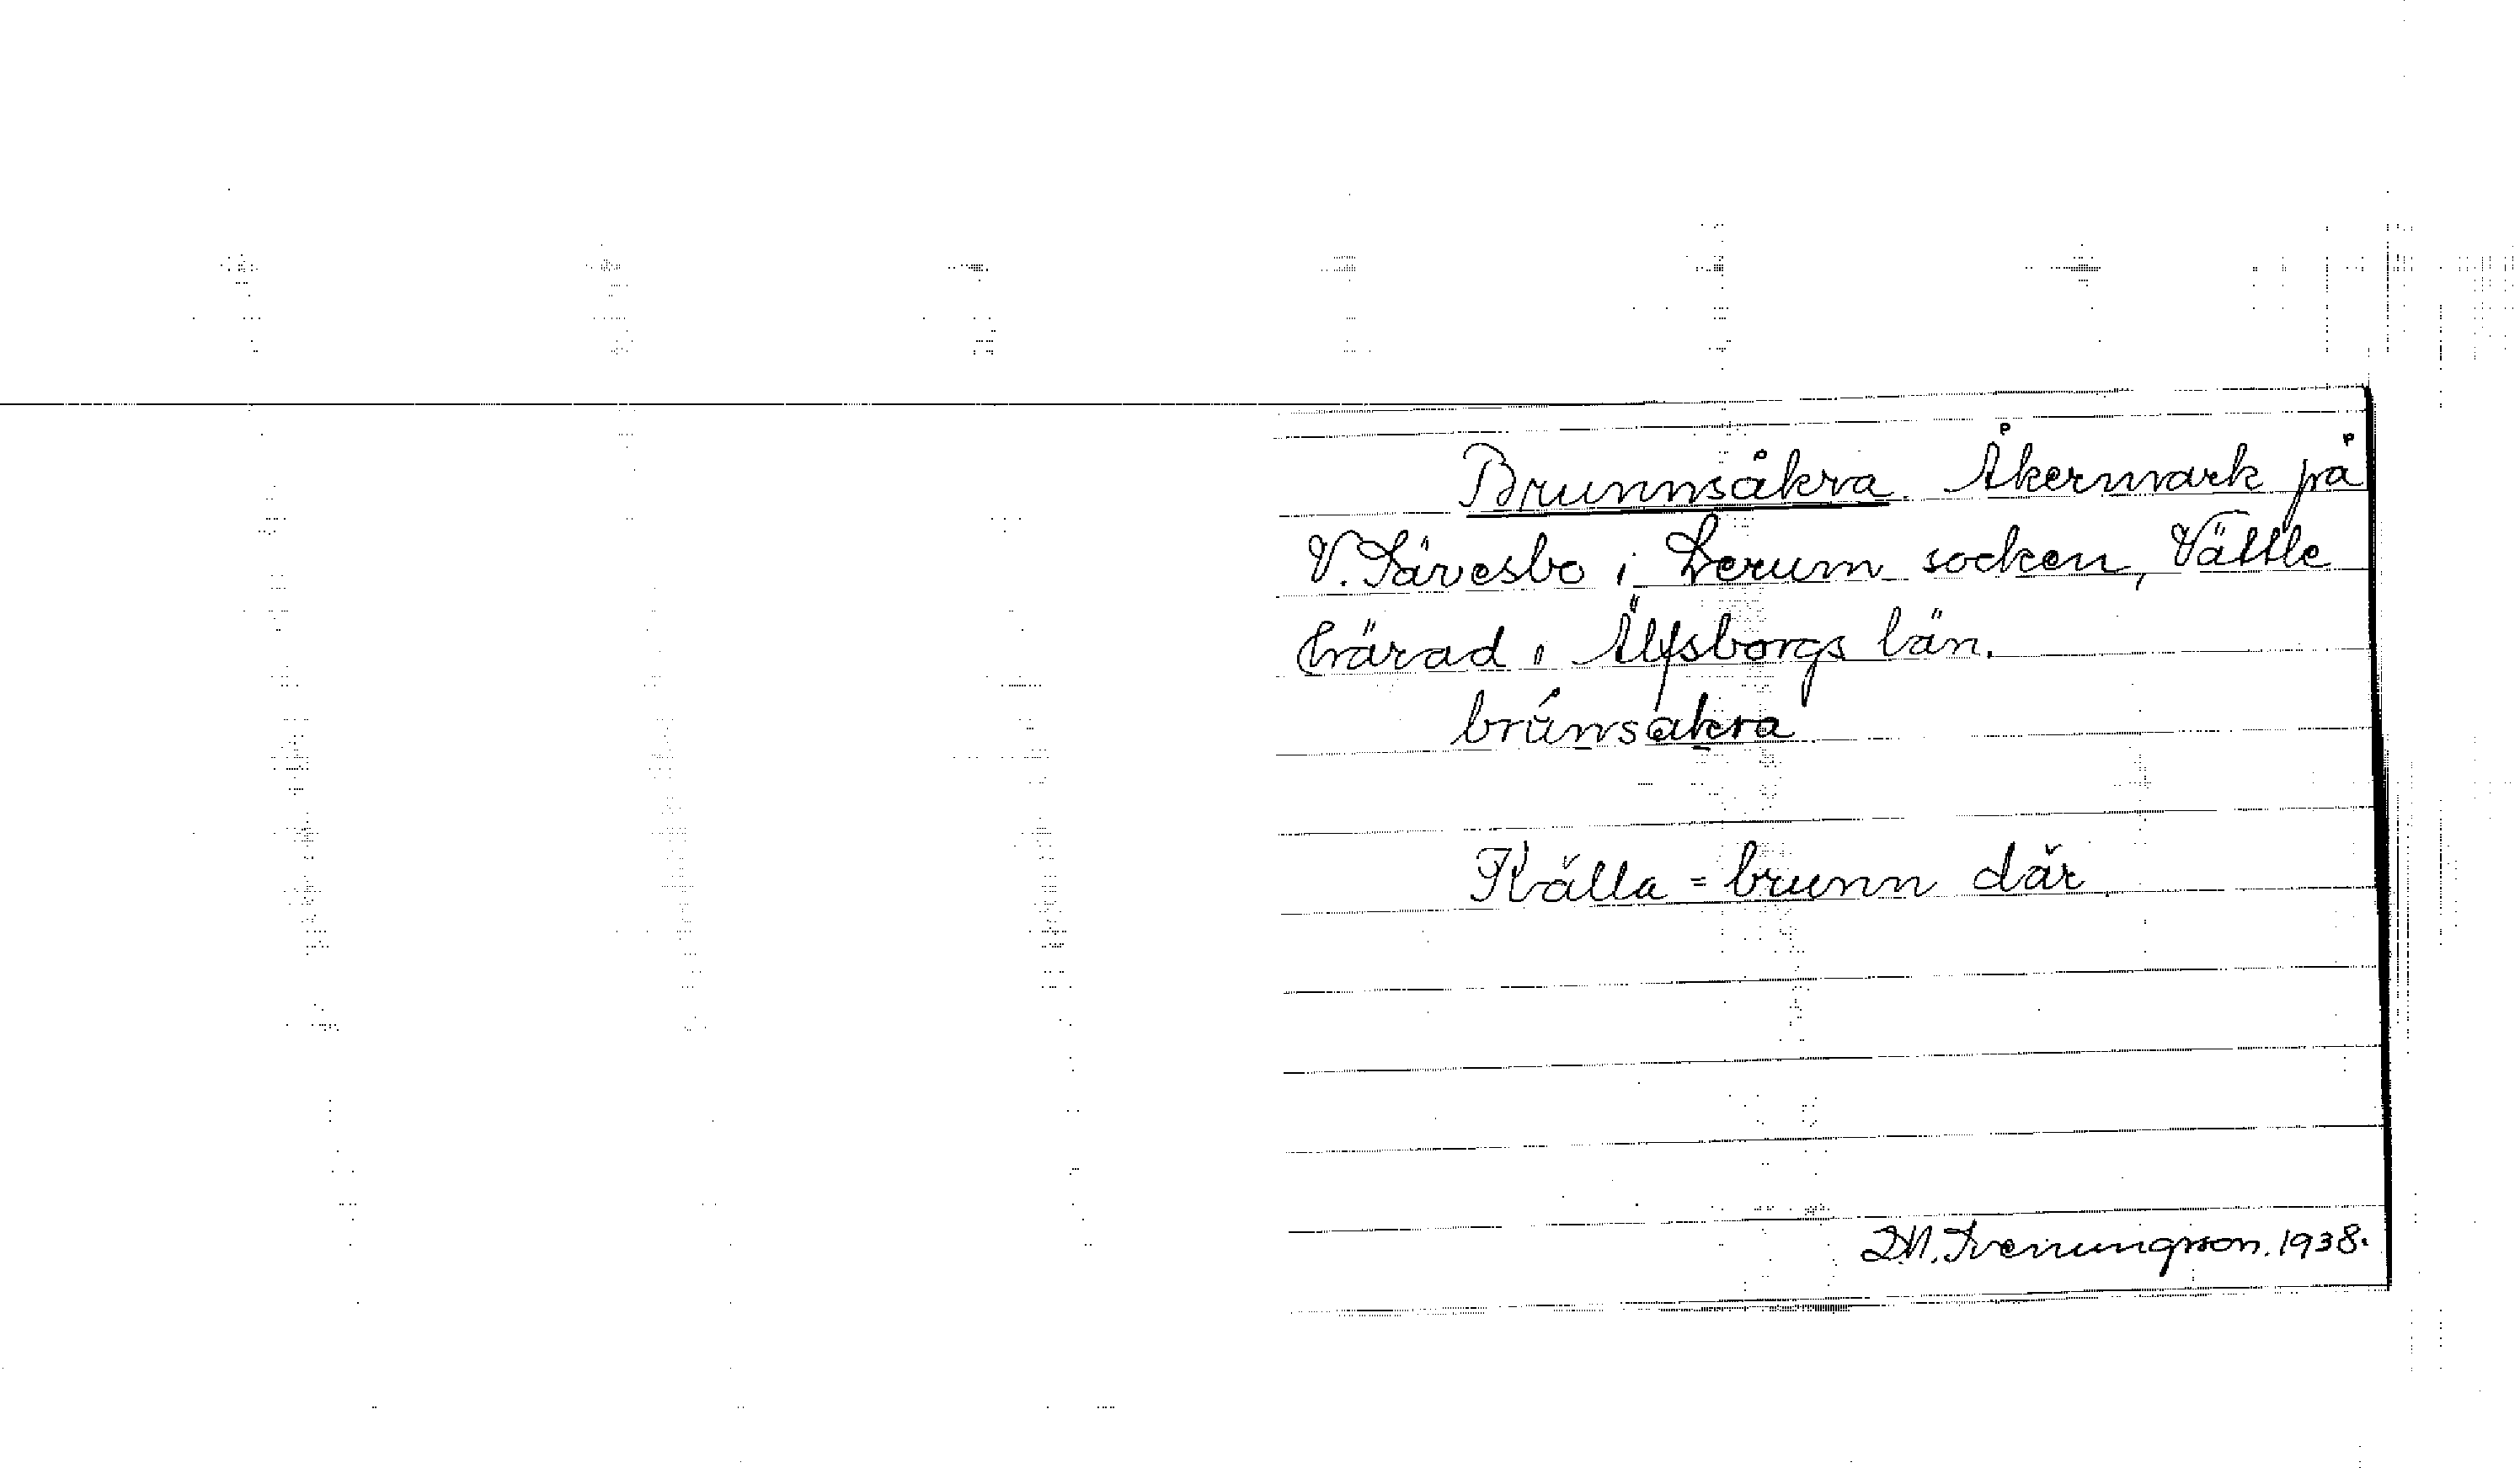 Brunnsåkra. Åkermark på
V. Sävesbo i Lerum socken, Vättle
härad i Älfsborgs län.
brúnsåkra
Källa = brunn där.
1938.